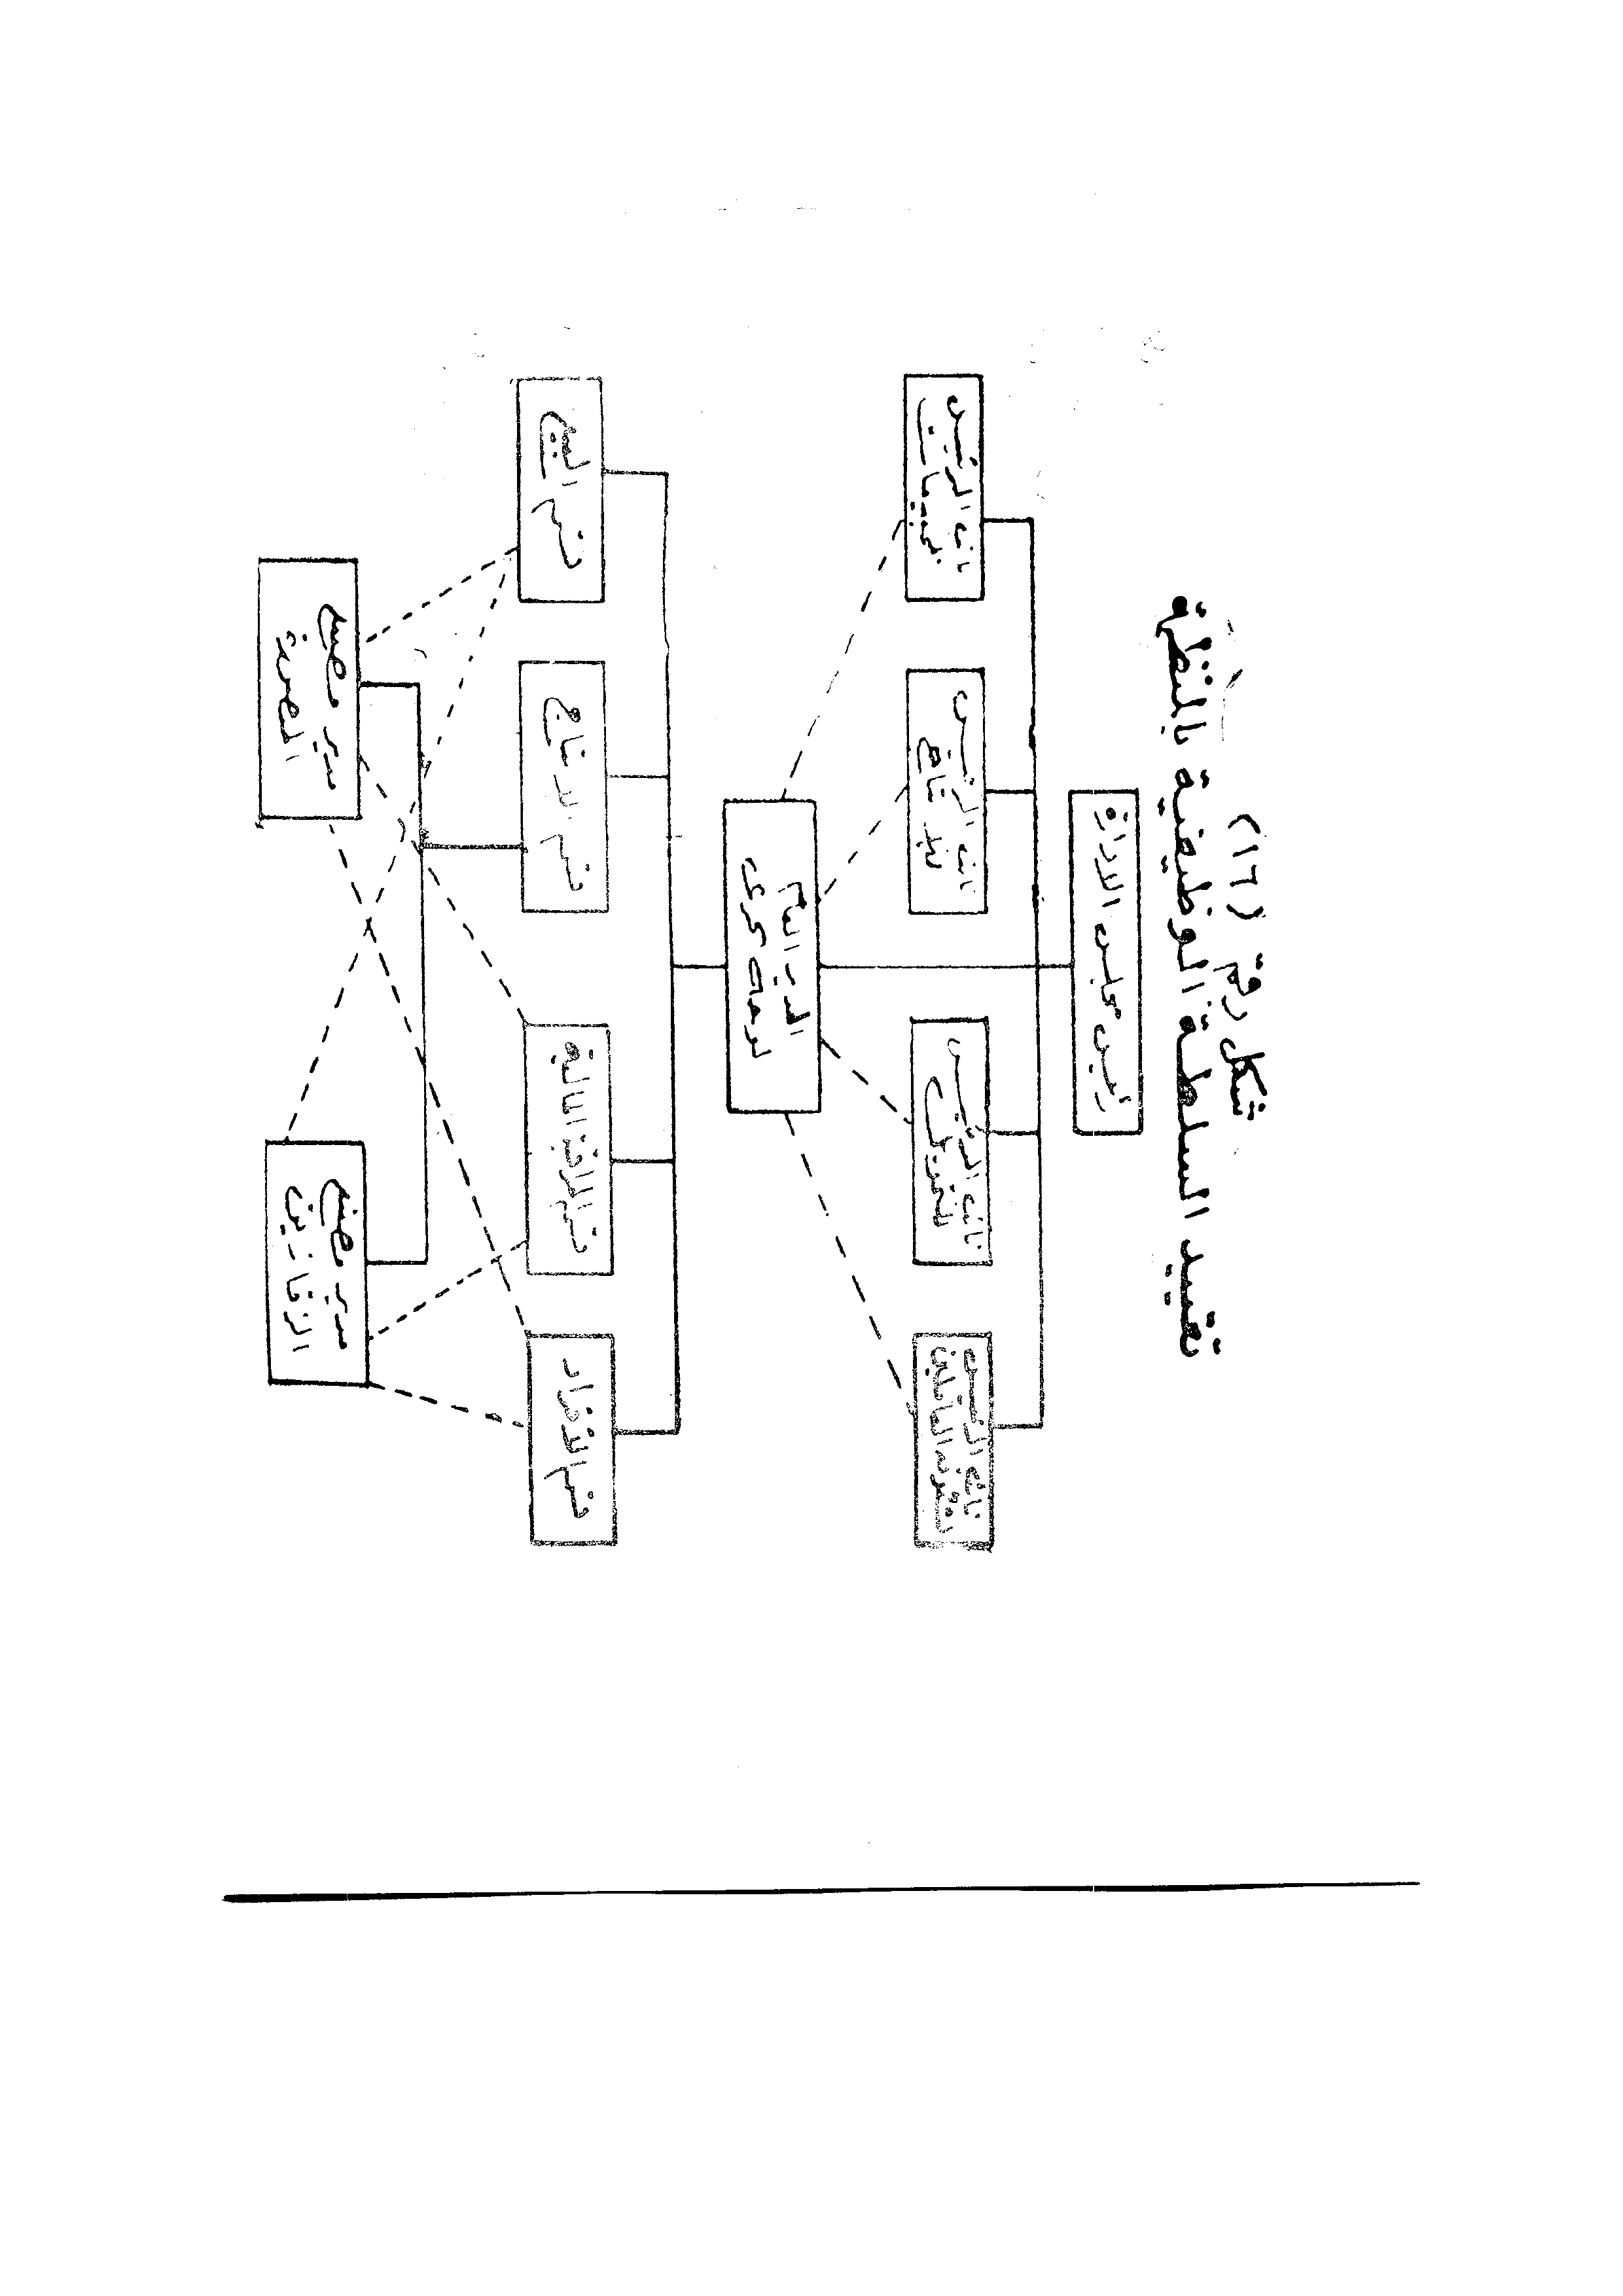 شكل رقم (١٦)
تقييد السلطة الوظيفية بالمنظمة
رئيس مجلس الادارة
نائب الرئيس لشئون العاملين
نائب الرئيس للتمويل
نائب الرئيس للانتاج
نائب الرئيس للمبيعات
المدير العام
لوجه بحرى
قسم الافراد
قسم المراقبة المالية
قسم الانتاج
قسم البيع
مدير مصنع
الزقازيق
مدير مصنع
المنصورة